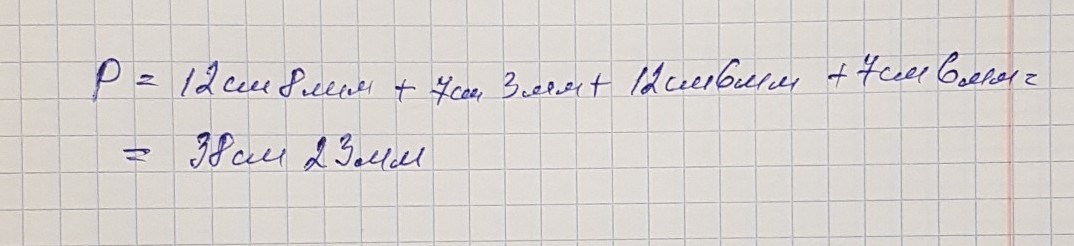 P = 12см 8мм + 7см 3мм + 12см 6мм + 7см 6мм =
= 38см 23мм